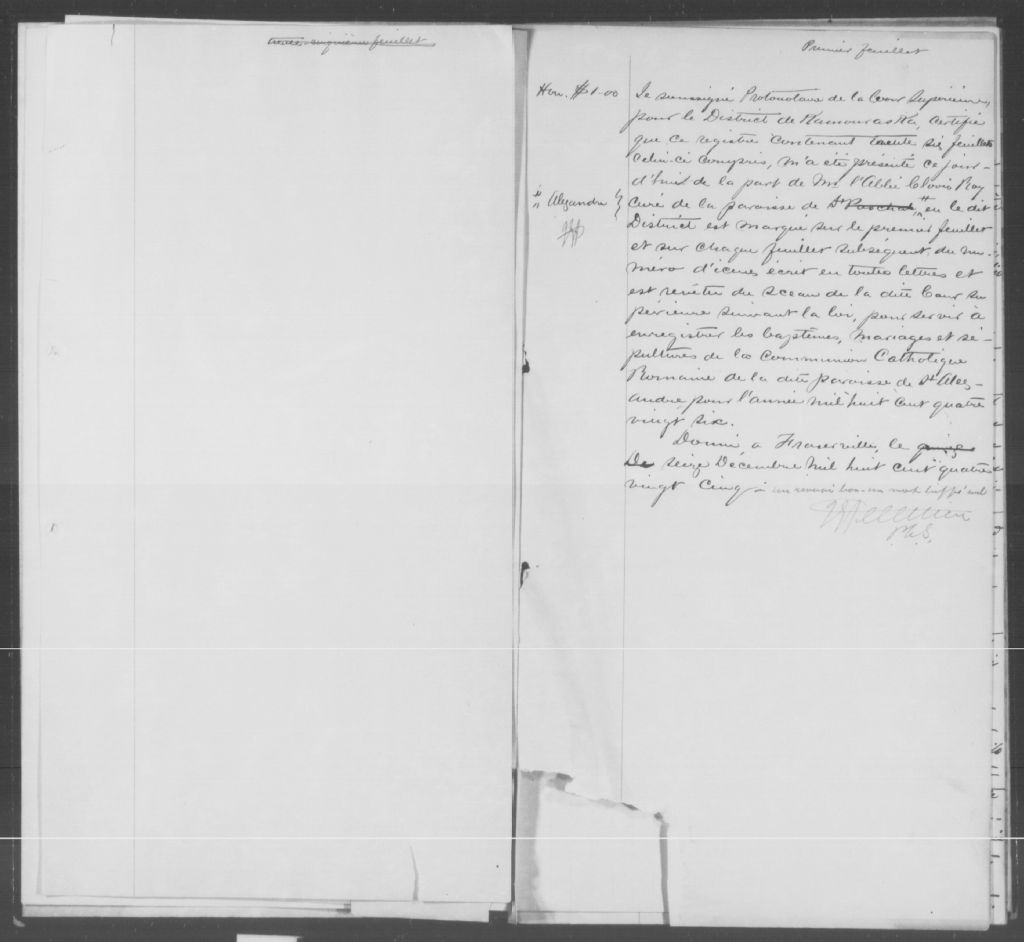 cinquième feuillet
Premier feuillet
Hon. $1.00
Je soussigné Protonotaire de la Cour Supérieure,
pour le District de Kamouraska, certifie
que ce registre contenant trente six feuillets
celui-ci compris, m'a été présenté ce jour-
d'hui de la part de Mr l'Abbé Clovis Roy
Curé de la paroisse de St Paschal, # en le dit
# Alexandre
District est marqué sur le premier feuillet
et sur chaque feuillet subséquent, du nu-
méro d'iceux écrit en toutes lettres et
est revêtu du sceau de la dite Cour Su
périeure suivant la loi, pour servir à
enregistrer les baptêmes, mariages et sé-
pultures de la Communion Catholique
Romaine de la dite paroisse de St Alex-
andre pour l'année mil huit cent quatre
vingt six.
Donné à Fraserville, le quinze
De seize Décembre mil huit cent quatre
vingt cinq - un renvoi bon - un mot biffé nul
P.C.S.